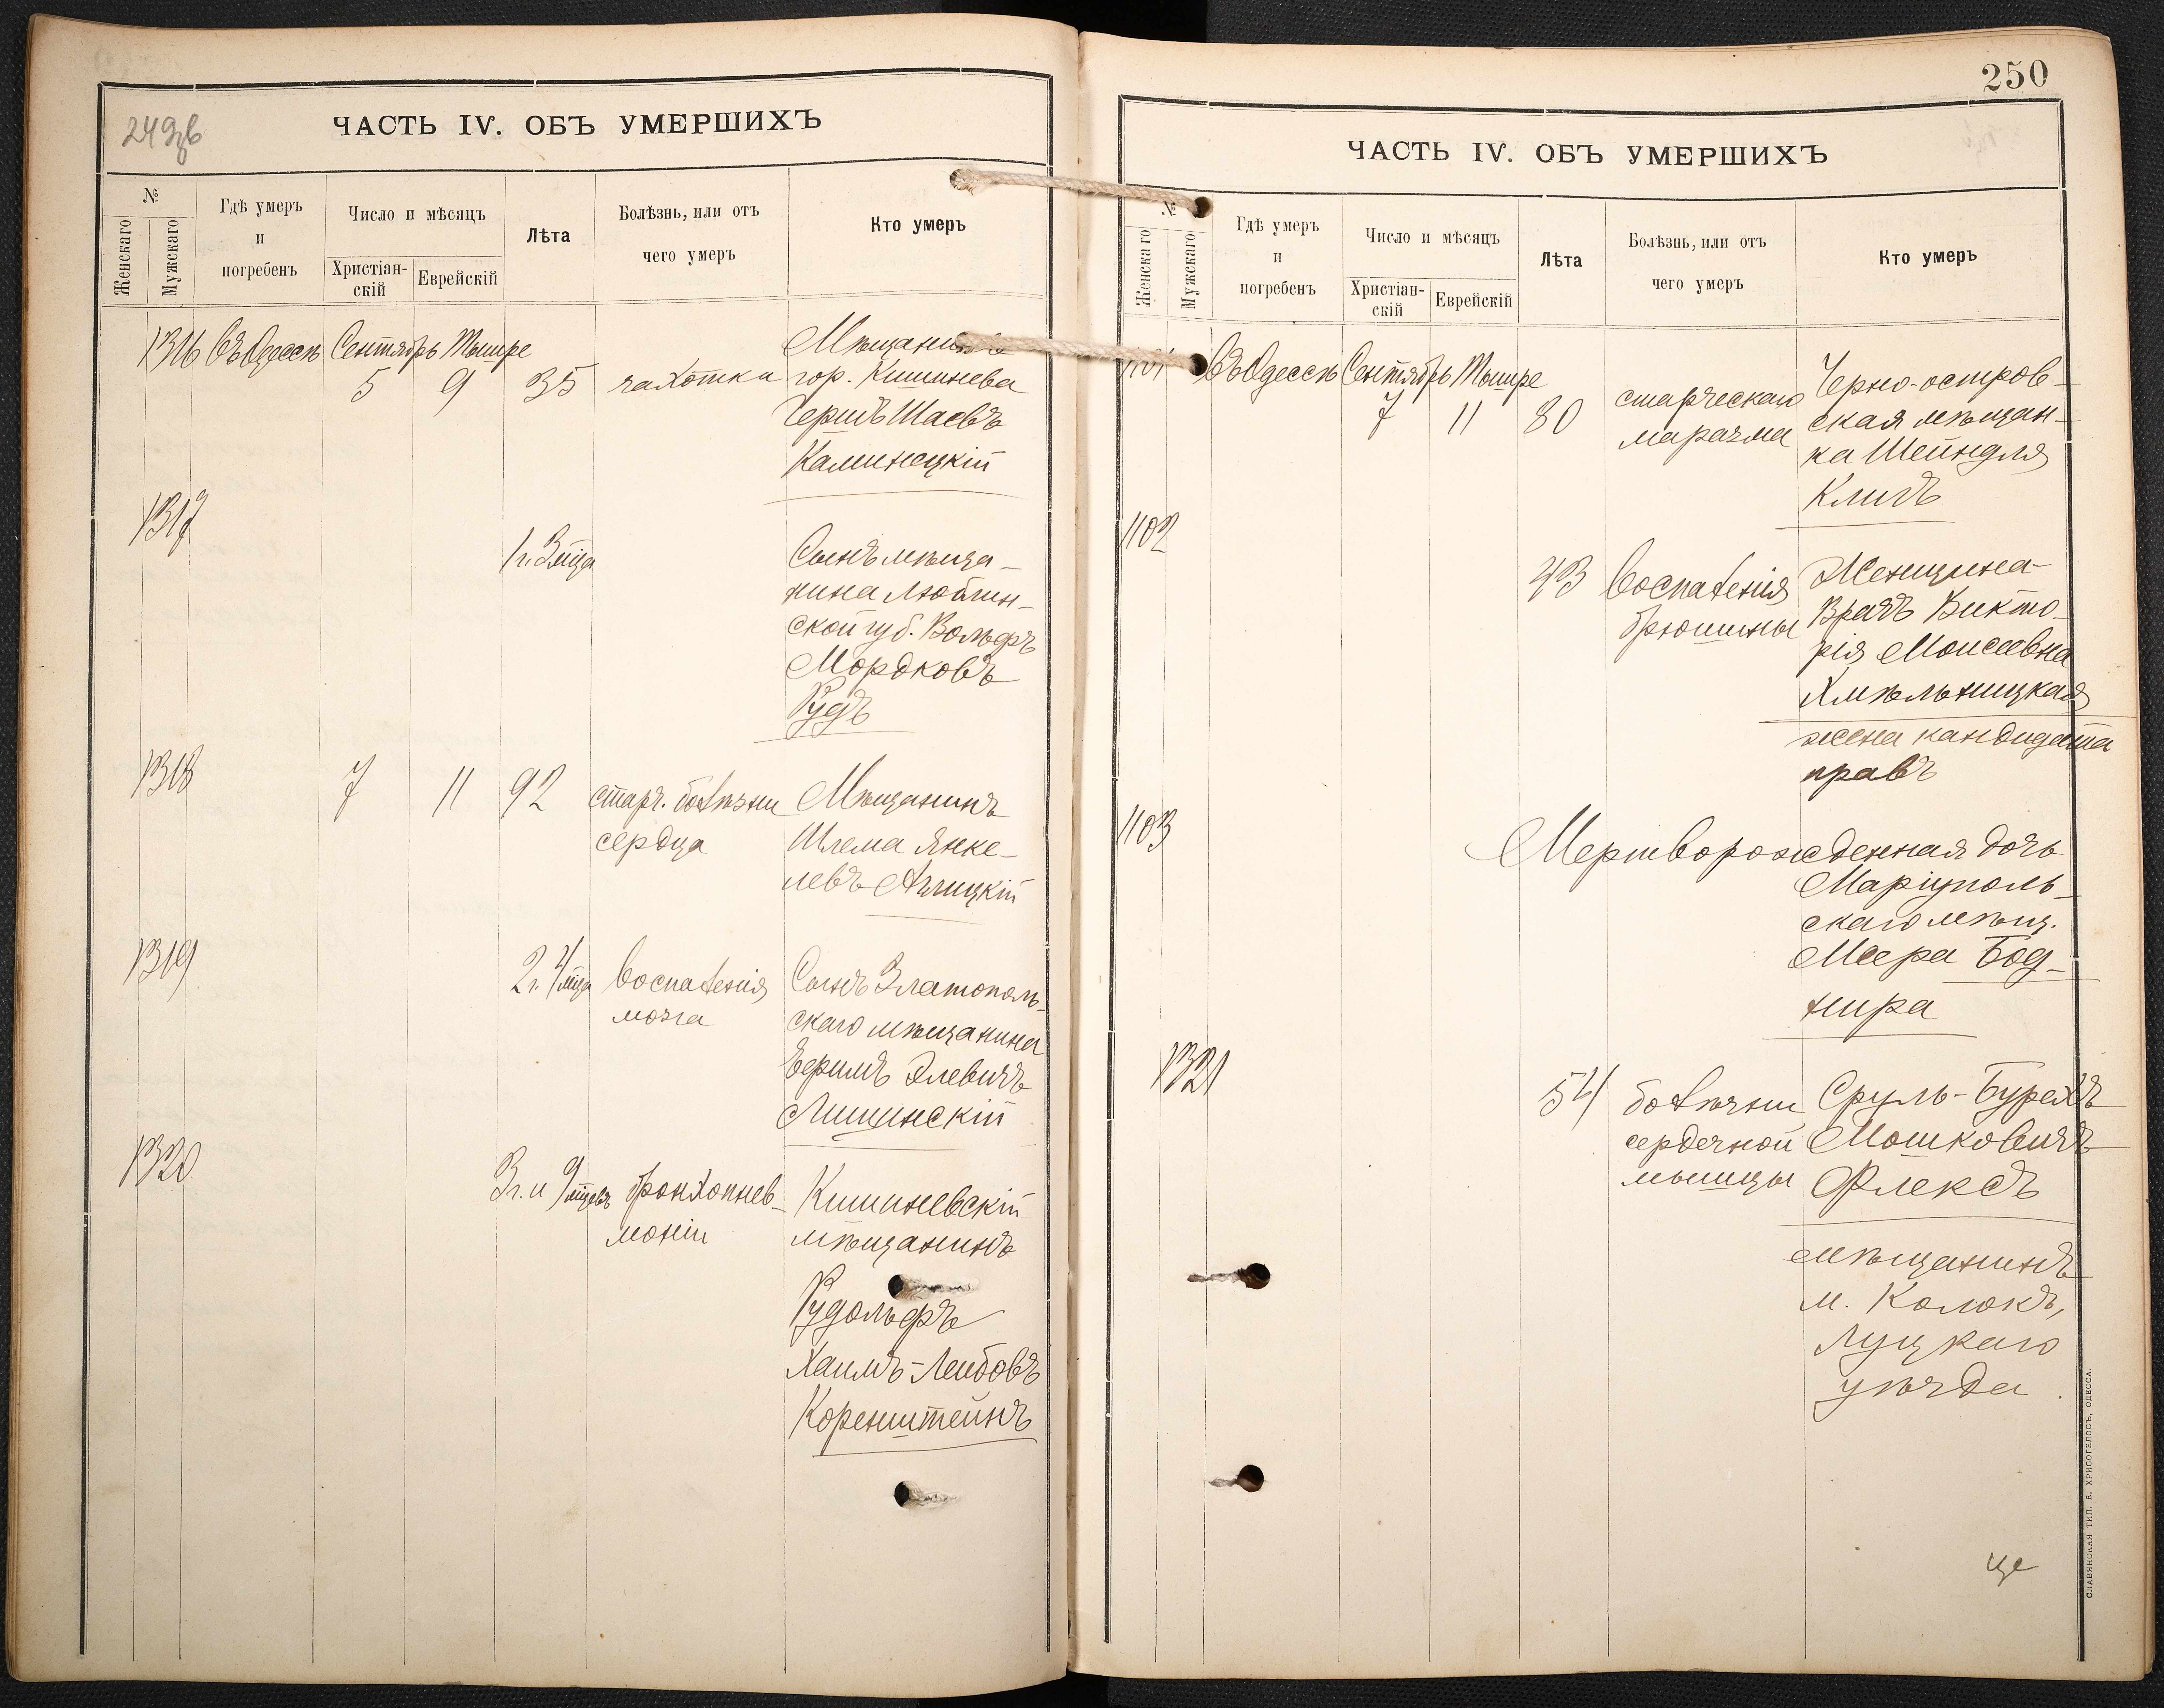 249об
ЧАСТЬ IV. ОБЪ УМЕРШИХЪ
№
Женскаго
Мужскаго
Гдѣ умеръ
и
погребенъ
Число и мѣсяцъ
Христіан-
скій
Еврейскій
Лѣта
Болѣзнь, или отъ
чего умеръ
Кто умеръ
1316 Въ Одессѣ Сентябрь Тишре
5 9 35 чахотки
Мѣщанинъ
гор. Кишинева
Гершъ Шаевъ
Каминецкій
1317
1 г. 3 мца
Сынъ мѣща-
нина Люблин-
ской губ. Вольфъ
Мордковъ
Рудъ
1318 7 11 92 старч. болѣзни
сердца
Мѣщанинъ
Шлема Янке-
левъ Аглицкій
1319
2 г. 4 мца воспаленія
мозга
Сынъ Златополь-
скаго мѣщанина
Берилъ Элевичъ
Лишинскій
1320
3 г. и 9 мцевъ бронхопнев-
моніи
Кишиневскій
мѣщанинъ
Рудольфъ
Хаимъ-Лейбовъ
Коренштейнъ
250
ЧАСТЬ IV. ОБЪ УМЕРШИХЪ
№
Женскаго
Мужскаго
Гдѣ умеръ
и
погребенъ
Число и мѣсяцъ
Христіан-
скій
Еврейскій
Лѣта
Болѣзнь, или отъ
чего умеръ
Кто умеръ
1101 Въ Одессѣ Сентябрь Тишре
7 11 80 старческаго
маразма
Черно-остров-
ская мѣщан-
ка Шейндля
Клигъ
1102
43 воспаленія
брюшины
Женщина-
врачъ Викто-
рія Моисеевна
Хмѣльницкая
жена кандидата
правъ
1103
Мертворожденная дочь
Маріуполь-
скаго мѣщ.
Меера Бод-
нира
1321
54 болѣзни
сердечной
мышцы
Сруль-Бурехъ
Мошковичъ
Флексъ
мѣщанинъ
м. Колокъ,
Луцкаго
уѣзда.
СЛАВЯНСКАЯ ТИП. Е. ХРИСОГЕЛОСЪ, ОДЕССА.